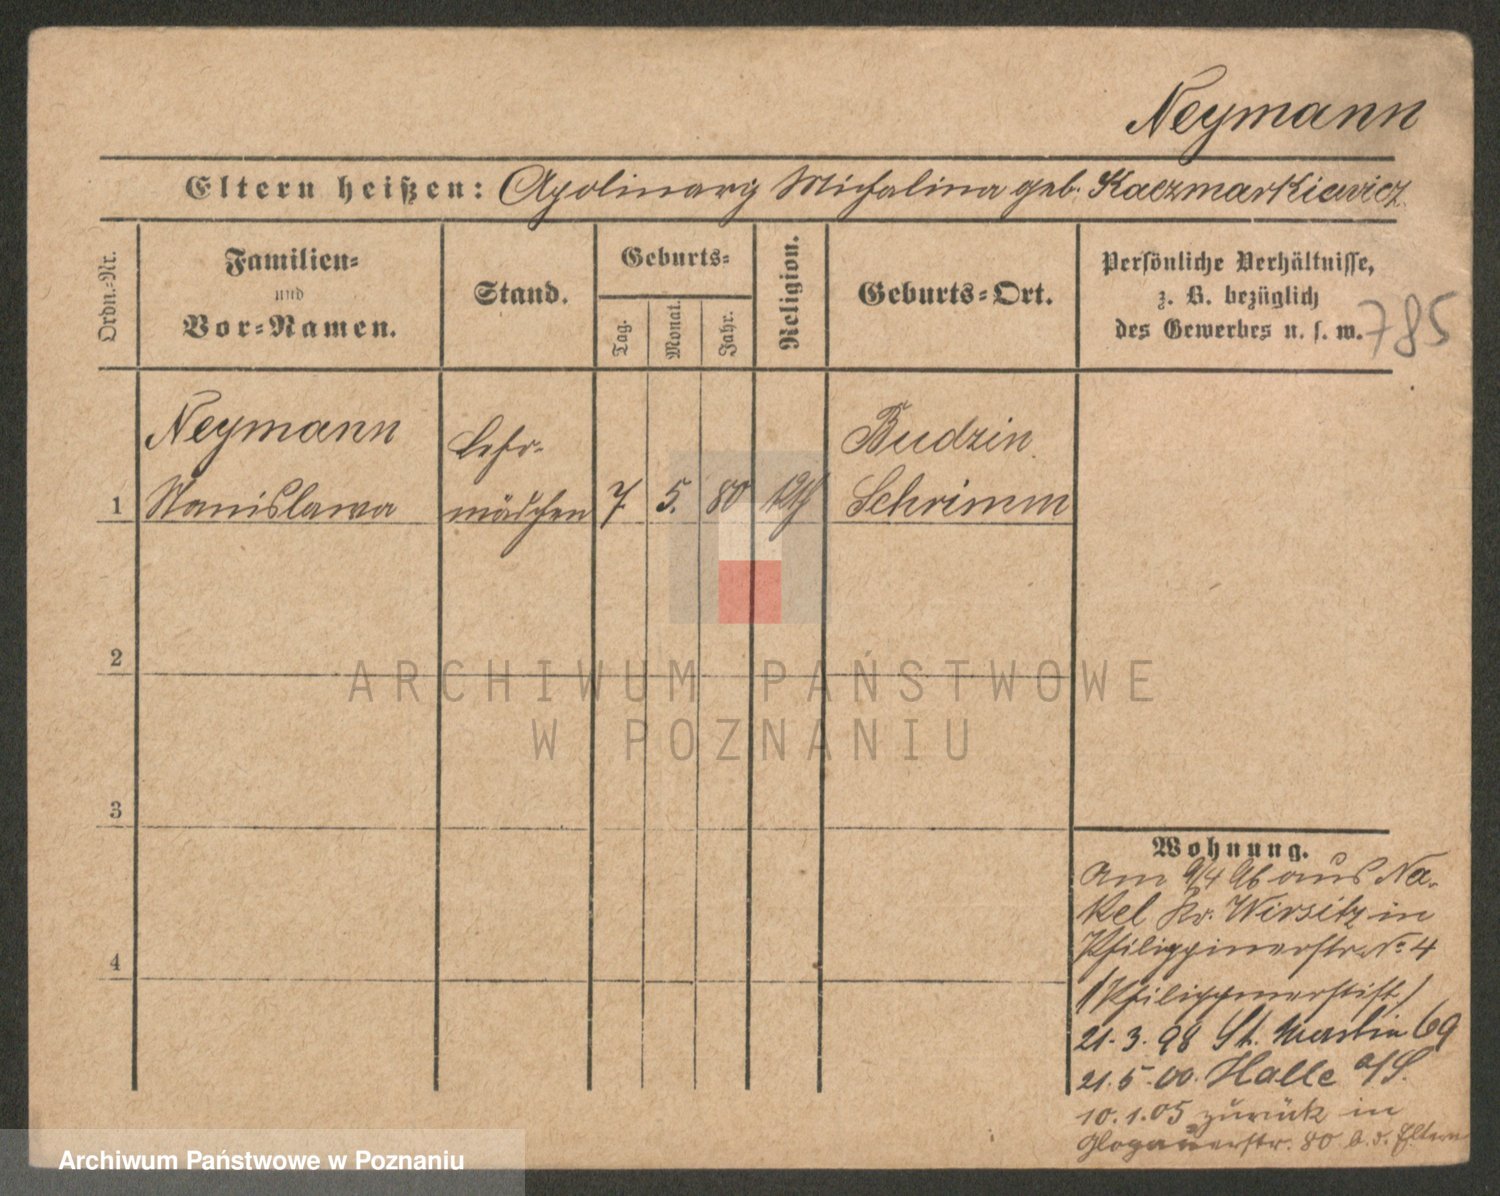 Neymann
Eltern heißen: Apolinary Michalina geb. Kaczmarkiewicz
Ordn.-Nr.
Familien-
und
Vor-Namen.
Stand.
Geburts-
Tag.
Monat.
Jahr.
Religion.
Geburts-Ort.
Persönliche Verhältnisse,
z. B. bezüglich
des Gewerbes u. s. w.
785
Neymann Lehr- Budzin
1 Stanislawa mädchen 7. 5. 80 kth Schrimm
2
3
4
Wohnung.
Am 9/4 96 aus Na-
kel Kr. Wirsitz in
Philippinerstr. No 4
/Philippinerstift/
21.3.98 St. Martin 69
21.5.00. Halle a/S.
10.1.05 zurück in
Glogauerstr. 80 b. d. Eltern
ARCHIWUM PAŃSTWOWE
W POZNANIU
Archiwum Państwowe w Poznaniu